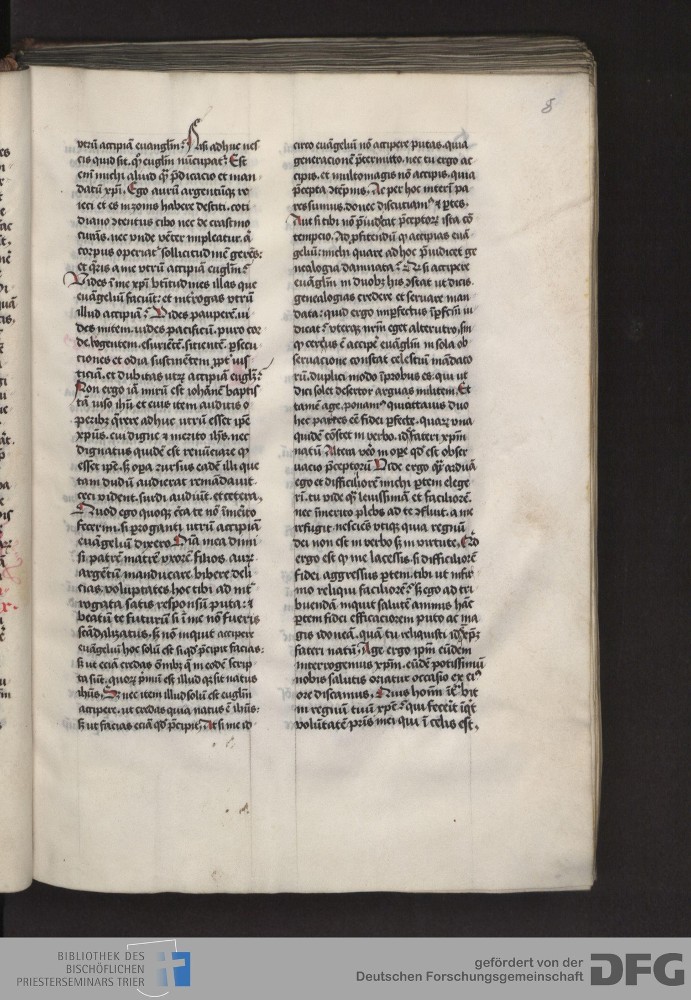 8
utrū accipiā euanglm̄? Nisi adhuc nes
cis quid sit, qd̓ euglm̄ nūcupat᷑. Est
em̄ nichil aliud qm̄ p̄dicacio et man
datū xp̄i. Ego aurū argentūqȝ re
ieci et es in zonis habere destiti. coti
diano ɔtentus cibo nec de crastino
curās. nec vnde vēter impleatur. aut
corpus operiat᷑ sollicitudinē gerēs:
et q̄ris a me vtrū accipiā euglm̄?
Vides ī me xp̄i btītudines illas que
euāgeliū faciūt: et int̓rogas vtrū
illud accipiā? Vides pauperē. vi
des mitem. vides pacificū. puro cor
de. lugentem. esuriētē. sitientē. p̄secu
ciones et odia sustinētem ꝓpt̓ ius
ticiā. et dubitas utrū accipiā euglm̄?
Non ergo iā mirū est iohānē baptis
tā viso ihū. et eius item auditis o
peribȝ q̄rere adhuc utrū esset ip̄e
xp̄us. cui digne et merito ihs. nec
dignatus quidē est renūciare qȝ
esset ip̄e. sȝ opa rursus eadē illi que
tam dudū audierat remādauit
ceci vident. surdi audiūt. et cetera.
Quod ego quoqȝ ɛ̄ca te nō īmerito
fecerim. si p̄roganti utrū accipiā
euāgeliū dixero. Oīa mea dimi
si. patrē matrē vxorē filios. aurū
argētū manducare. bibere. deli
cias. voluptates. hoc tibi ad int̓
rogata satis responsū puta: et
beatū te futurū si ī me nō fueris
scādalizatus. sȝ nō inquit accipere
euāgeliū hoc solū est si qd̓ p̄cipit facias:
sȝ ut eciā credas om̄ibȝ q̄ in eodē scrip
ta sūt. quorȝ p̄mū est illud qȝ sit natus
ihūs. Sȝ nec item illud solū est euglm̄
accipere. ut credas quia natus ē ihūs:
sȝ ut facias eciā qd̓ p̄cipit. At si me id
circo euāgeliū nō accipere putas. quia
generacionē p̄termitto. nec tu ergo ac
cipis. et multomagis nō accipis. quia
p̄cepta ɔtēpnis. Ac per hoc interī pa
res sumus. donec discutiam᷒ et p̄tes.
Aut si tibi nō p̄iudicat p̄ceptorȝ ista cō
tempcio. Ad ꝓfitendū qȝ accipias euā
geliū: michi quare ad hoc p̄iudicet ge
nealogia damnata? Qd̓ si accipere
euāglm̄ in duobȝ hijs ɔstat ut dicis.
genealogias credere et seruare man
data: quid ergo imp̄fectus īp̄fcm̄ iu
dicat? vterqȝ nrm̄ eget alterutro. sin
qȝ cercius ē accipe euāglm̄ in sola ob
seruacione constat celestiū mādato
rū. duplici modo īprobus es: qui ut
dici solet desertor arguas militem. Et
tamē age. ponam᷒ quicttauis duo
hec partes eē fidei p̄fecte. quarȝ vna
quidē cōstet in verbo. id ē fateri xp̄m
natū. Altera vēo in ope qd̓ est obser
uacio p̄ceptorū. Vide ergo qm̄ arduā
ego et difficiliorē michi p̄tem elege
rī. tu vide qm̄ leuissimā et faciliorē.
nec īmerito plebs ad te ɔfluit. a me
refugit. nesciēs vtiqȝ quia regnū
dei non est in verbo sȝ in virtute. Qd̓
ergo est qȝ me lacessis. si difficiliorē
fidei aggressus p̄tem. tibi ut infir
mo reliqui faciliorē? Sȝ ego ad tri
buendā inquit salutē animis hāc
p̄tem fidei efficaciorem puto ac ma
gis idoneā. quā tu reliquisti. id ē xp̄m
fateri natū. Age ergo ip̄m eūdem
interrogemus xp̄m. eūdē potissimū
nobis salutis oriatur occasio ex ei᷒
ore discamus. Quis hoīm īt̓bit
in regnū tuū xp̄e? qui fecerit īqt
volūtatē pr̄is mei qui ī celis est.
BIBLIOTHEK DES
BISCHÖFLICHEN
PRIESTERSEMINARS TRIER
gefördert von der
Deutschen Forschungsgemeinschaft
DFG